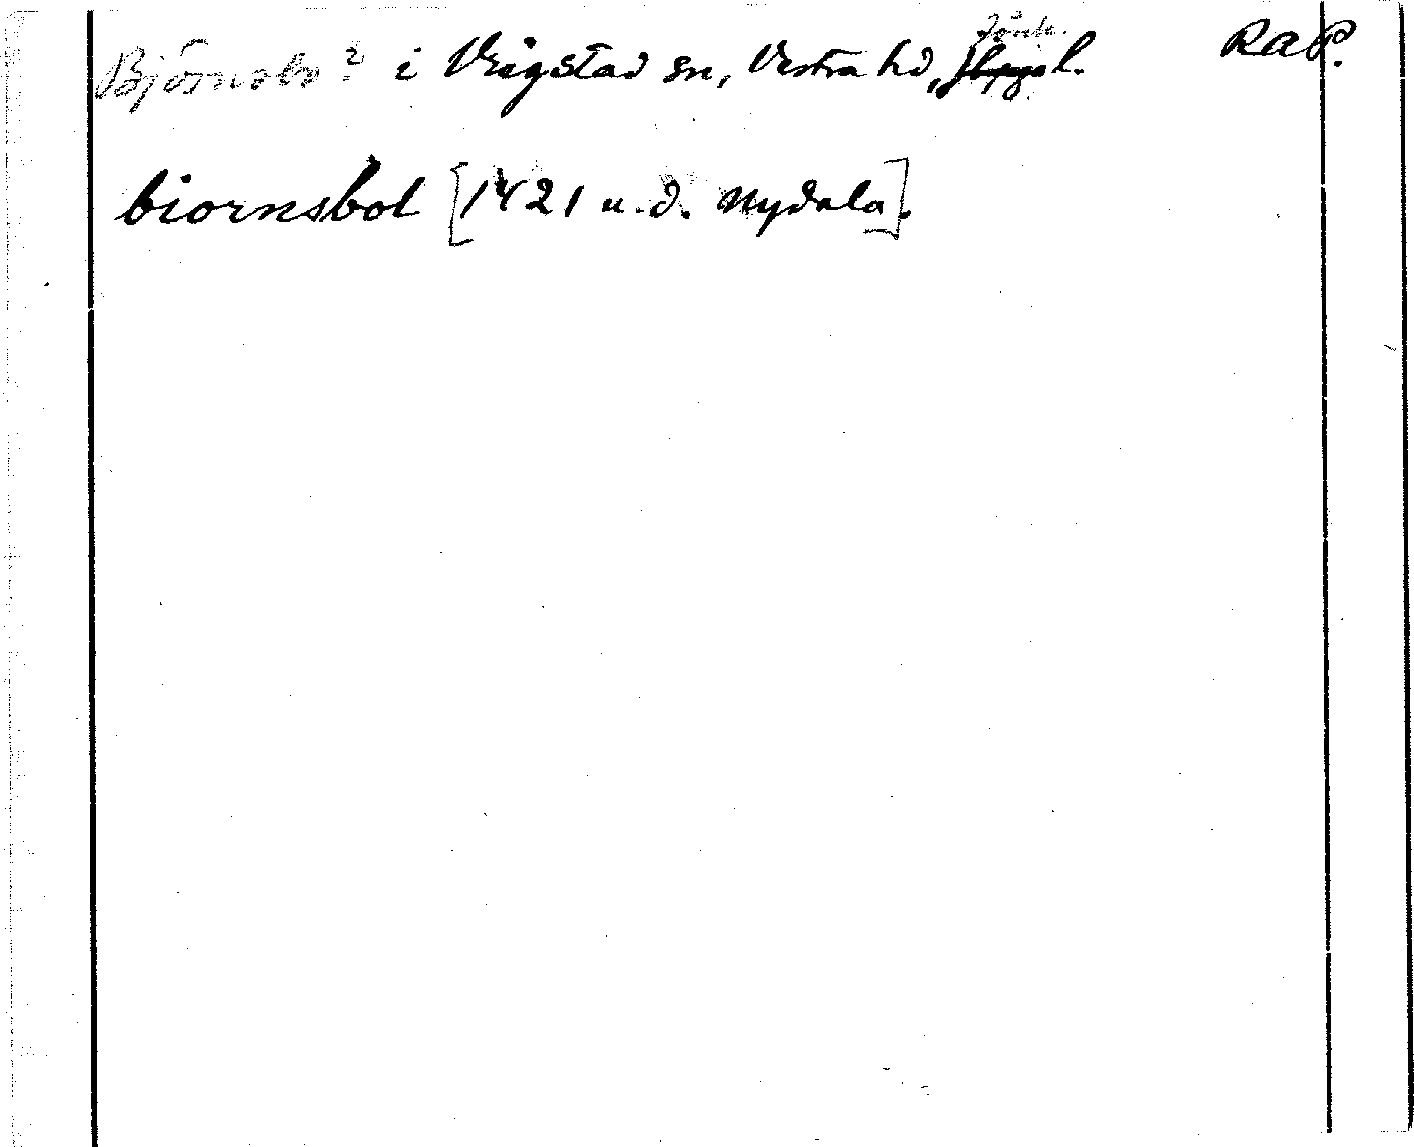 Björnsbo? i Vrigstad sn, Västra hd, Jönk. l. RAP.
biornsbol [1421 u.d. Nydala].